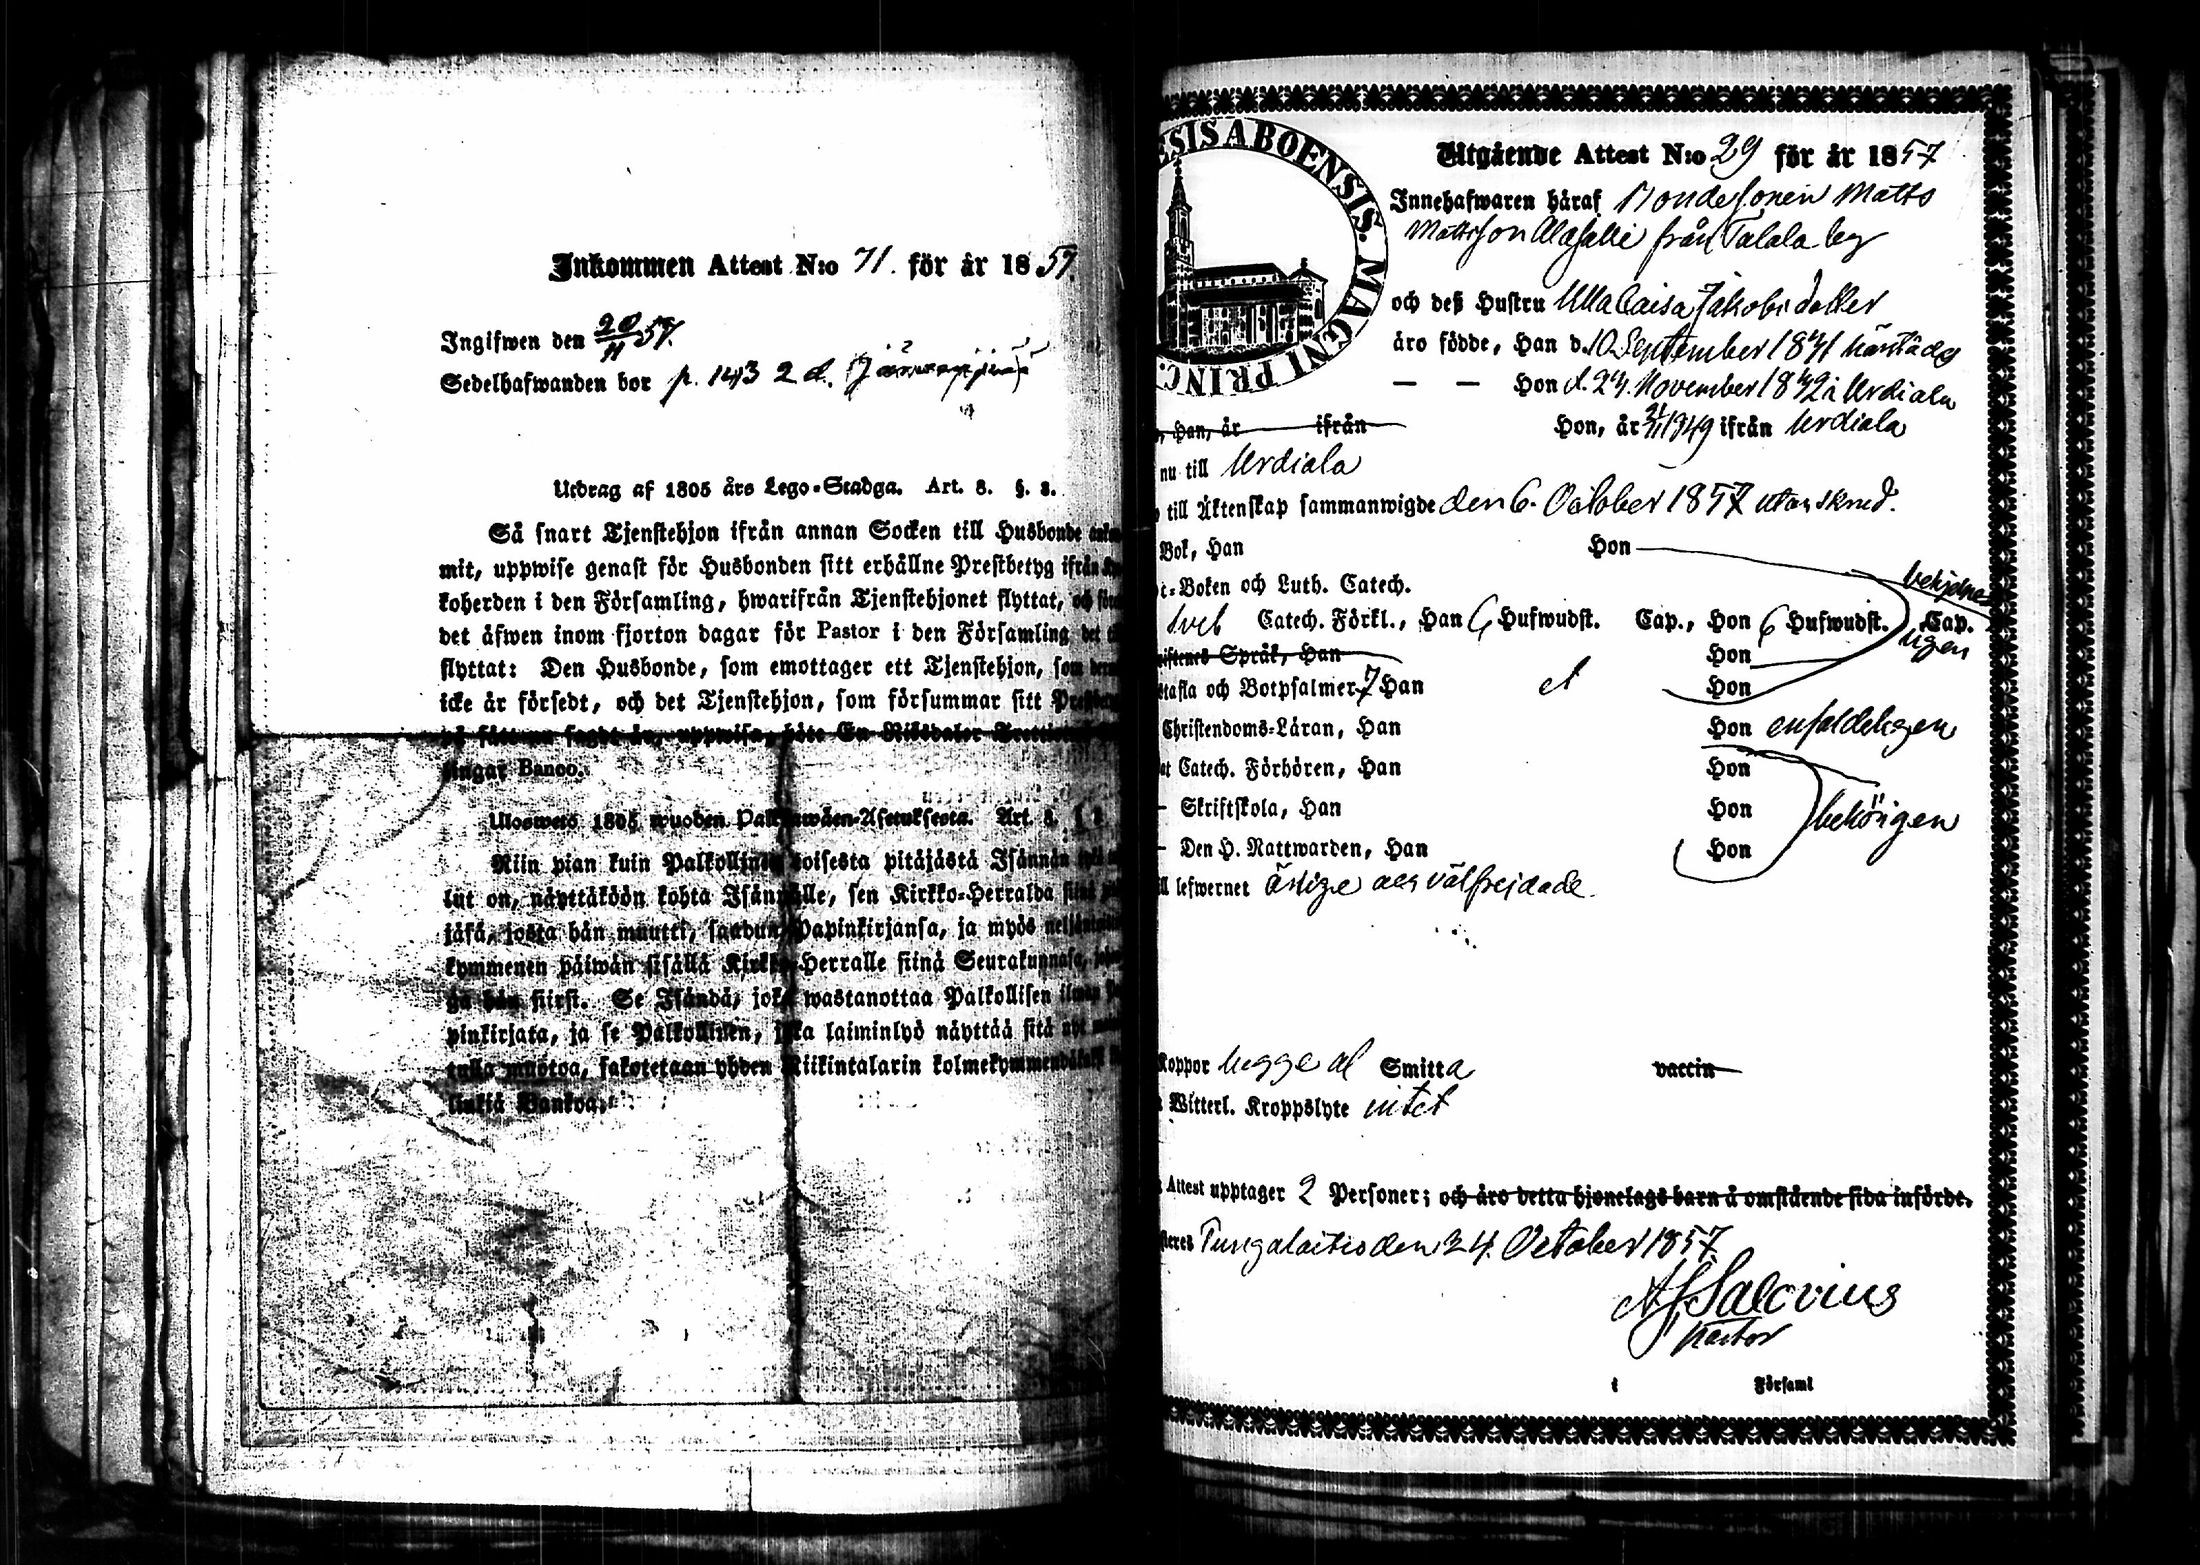 Inkommen Attest N:o 71. för år 1857.
Ingifwen den 20/11 57.
Sedelhafwanden bor p. 143 2 d.
Utdrag af 1805 års Lego-Stadga. Art. 8. §. 3.
Så snart Tjenstehjon ifrån annan Socken till Husbonde
mit, uppwise genast för Husbonden sitt erhållne Prestbetyg ifrån
koherden i den Församling, hwarifrån Tjenstehjonet flyttat, och
det äfwen inom fjorton dagar för Pastor i den Församling det
flyttat: Den Husbonde, som emottager ett Tjenstehjon, som
icke är försedt, och det Tjenstehjon, som försummar sitt
på sätt nu sagdt är, uppwisa, böte En Riksdaler Trettio
lingar Banco.
Ulosweto 1805 wuoden Palkkawäen-Asetuksesta. Art. 8. §
Niin pian kuin Palkollinen toisesta pitäjästä Isännän
lut on, näyttäköön kohta Isännälle, sen Kirkko-Herralda siinä
jäsä, josta hän muutti, saadun Papinkirjansa, ja myös
kymmenen päiwän sisällä Kirkko-Herralle siinä Seurakunnasa,
ga hän siirsi. Se Isändä, joka wastanottaa Palkollisen ilman
pinkirjata, ja se Palkollinen, joka laiminlyö näyttää sitä nyt
tulla muotoa, sakotetaan yhden Riikintalarin kolmekymmendäkaksi
linkiä Bankoa.
ESIS ABOENSIS. MAGNI PRINC.
Utgående Attest N:o 29 för år 1857
Innehafwaren häraf Bondesonen Matts
Mattsson Alasalli från Talala by
och deß Hustru Ulla Caisa Jakobsdotter
äro födde, Han d. 10 September 1831 härstädes
— — Hon d. 24. November 1832 i Urdiala
Han, är ifrån Hon, är 1849 ifrån Urdiala
nu till Urdiala
till Äktenskap sammanwigde den 6. October 1857
Bok, Han Hon
Boken och Luth. Catech.
Catech. Förkl., Han 6 Hufwudst. Cap., Hon 6 Hufwudst. Cap.
Språk, Han Hon
tafla och Botpsalmer 7 Han Hon
Christendoms-Läran, Han Hon enfaldeligen
Catech. Förhören, Han Hon
— Skriftskola, Han Hon behörigen
— Den H. Nattwarden, Han Hon
lefwernet ärlige och välfrejdade.
Koppor begge af Smitta vaccin
Witterl. Kroppslyte intet
Attest upptager 2 Personer; och äro detta hjonelags barn å omstående sida införde.
Pungalaitio den 24. October 1857.
Pastor
i Församl